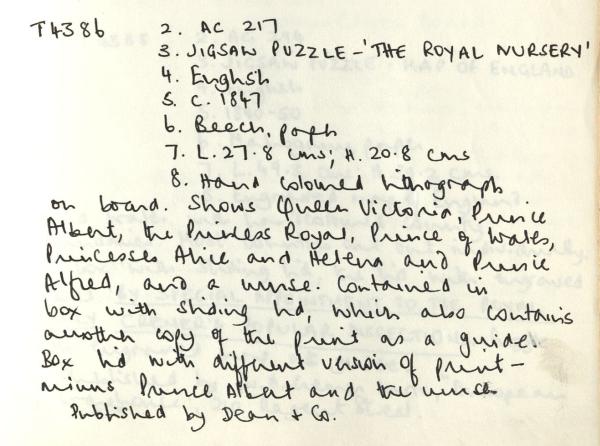 T4386 2. AC 217
3. JIGSAW PUZZLE - 'THE ROYAL NURSERY'
4. English
5. C. 1847
6. Beech, paper
7. L. 27.8 cms; H. 20.8 cms
8. Hand coloured lithograph
on board. Shows Queen Victoria, Prince
Albert, the Princess Royal, Prince of Wales,
Princesses Alice and Helena and Prince
Alfred, and a nurse. Contained in
box with sliding lid, which also contains
another copy of the print as a guide.
Box lid with different version of print -
minus Prince Albert and the nurse.
Published by Dean + Co.